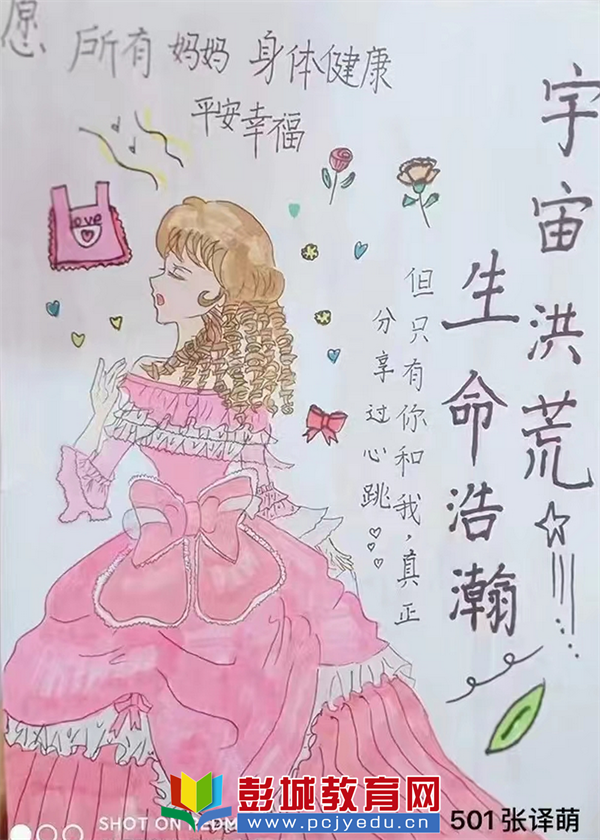 愿 所有 妈妈 身体健康
平安幸福
宇宙洪荒
生命浩瀚
但只有你和我,真正
分享过心跳
Love
SHOT ON REDM
彭城教育网
www.pcjyedu.cn
501张译萌